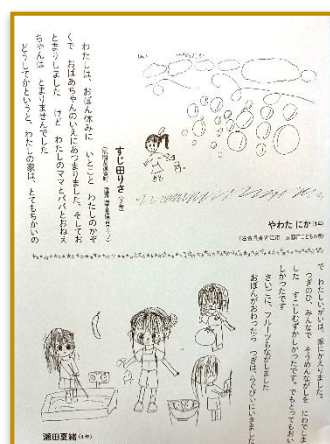 やわた にか(1年)
すじ田りさ(2年)
わたしは、おぼん休みに いとこと わたしのかぞ
くで おばあちゃんのいえにあつまりました。そしてお
とまりしました けど わたしのママとパパとおねえ
ちゃんは とまりませんでした
どうしてかというと、わたしの家は、とてもちかいの
で、わたしいがいは、家にかえりました。
つぎのひ、みんなで そうめんながしを にわでしま
した すこしむずかしかったです。でもとってもおい
しかったです
さいごに、フルーツもながしました
おぼんがおわったら つぎは、らくびいにいきました
瀬田夏緒(4年)